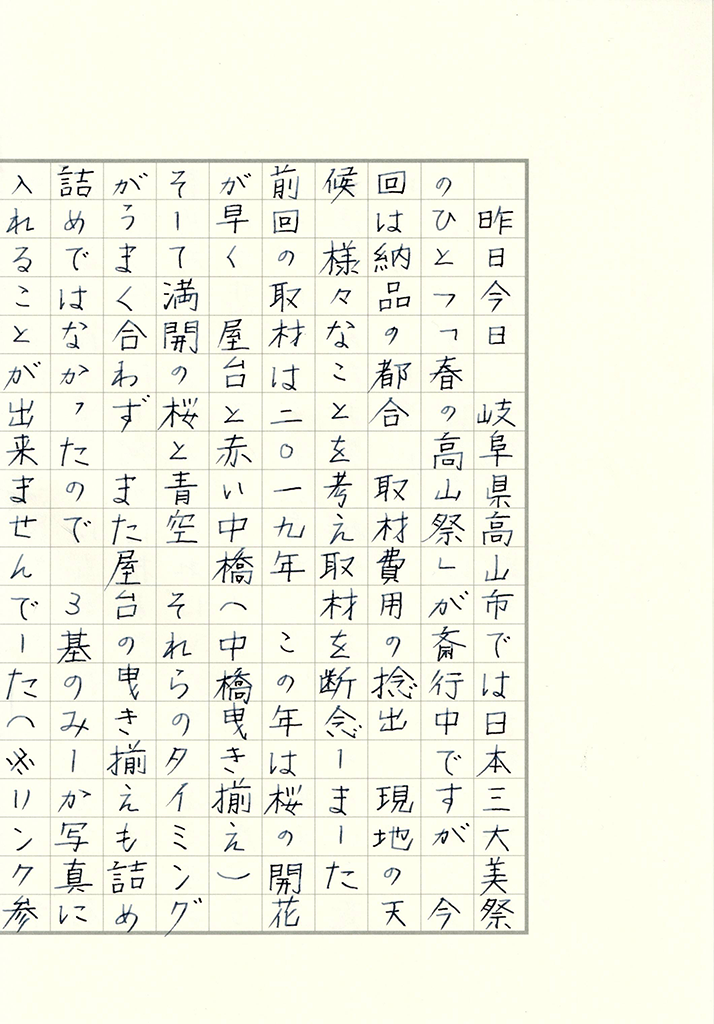 昨日今日　岐阜県高山市では日本三大美祭
のひとつ「春の高山祭」が斎行中ですが　今
回は納品の都合　取材費用の捻出　現地の天
候　様々なことを考え取材を断念しました
前回の取材は二〇一九年　この年は桜の開花
が早く　屋台と赤い中橋(中橋曳き揃え)
そして満開の桜と青空　それらのタイミング
がうまく合わず　また屋台の曳き揃えも詰め
詰めではなかったので　3基のみしか写真に
入れることが出来ませんでした(※リンク参